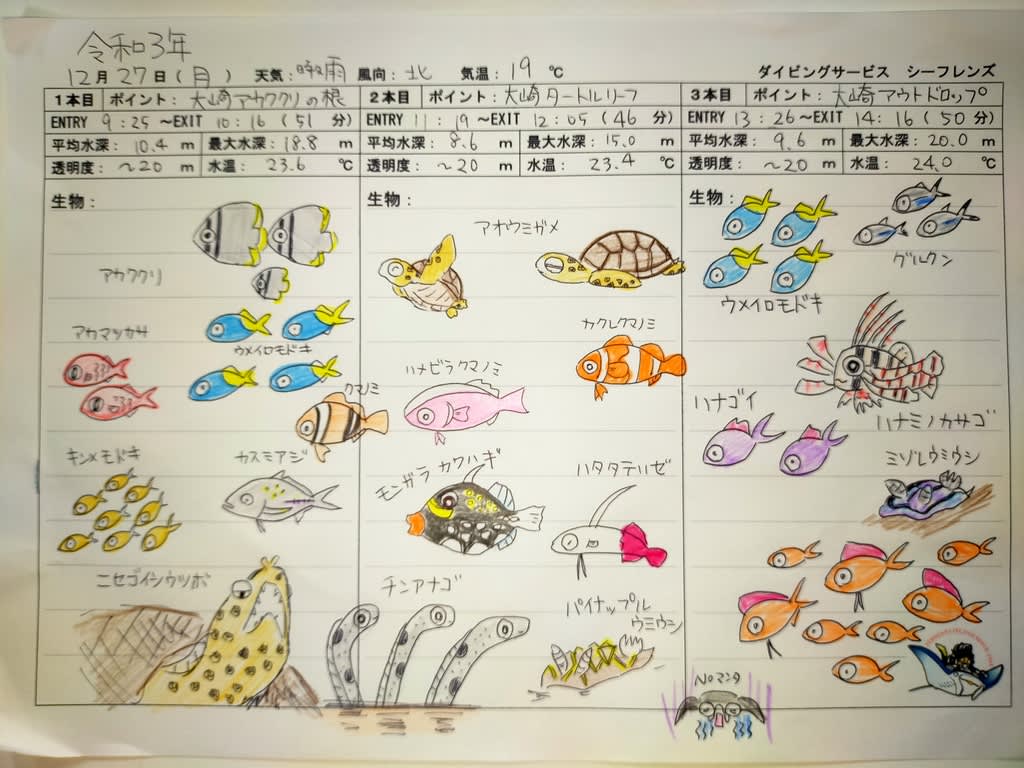 令和3年
12月27日(月) 天気:時々雨 風向:北 気温:19℃ ダイビングサービス シーフレンズ
1本目 ポイント:大崎アカククリの根
ENTRY 9:25~EXIT 10:16(51分)
平均水深:10.4m 最大水深:18.8m
透明度:~20m 水温:23.6℃
生物:
アカククリ
アカマツカサ
ウメイロモドキ
クマノミ
キンメモドキ
カスミアジ
ニセゴイシウツボ
2本目 ポイント:大崎タートルリーフ
ENTRY 11:19~EXIT 12:05(46分)
平均水深:8.6m 最大水深:15.0m
透明度:~20m 水温:23.4℃
生物:
アオウミガメ
カクレクマノミ
ハメビラクマノミ
モンガラカワハギ
ハタタテハゼ
チンアナゴ
パイナップル
ウミウシ
3本目 ポイント:大崎アウトドロップ
ENTRY 13:26~EXIT 14:16(50分)
平均水深:9.6m 最大水深:20.0m
透明度:~20m 水温:24.0℃
生物:
グルクン
ウメイロモドキ
ハナゴイ
ハナミノカサゴ
ミゾレウミウシ
Noマンタ